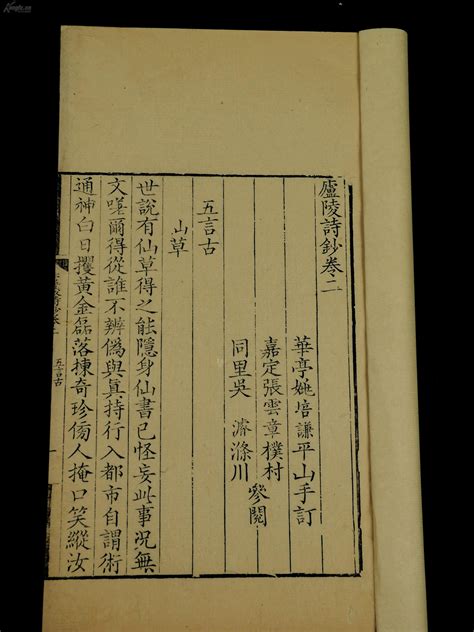 廬陵詩鈔卷二
華亭姚培謙平山手訂
嘉定張雲章樸村
參閱
同里吳 濟滌川
五言古
山草
世說有仙草得之能隱身仙書已怪妄此事況無
文嗟爾得從誰不辨偽與真持行入都市自謂術
通神白日攫黃金磊落揀奇珍傍人掩口笑縱汝
五言古